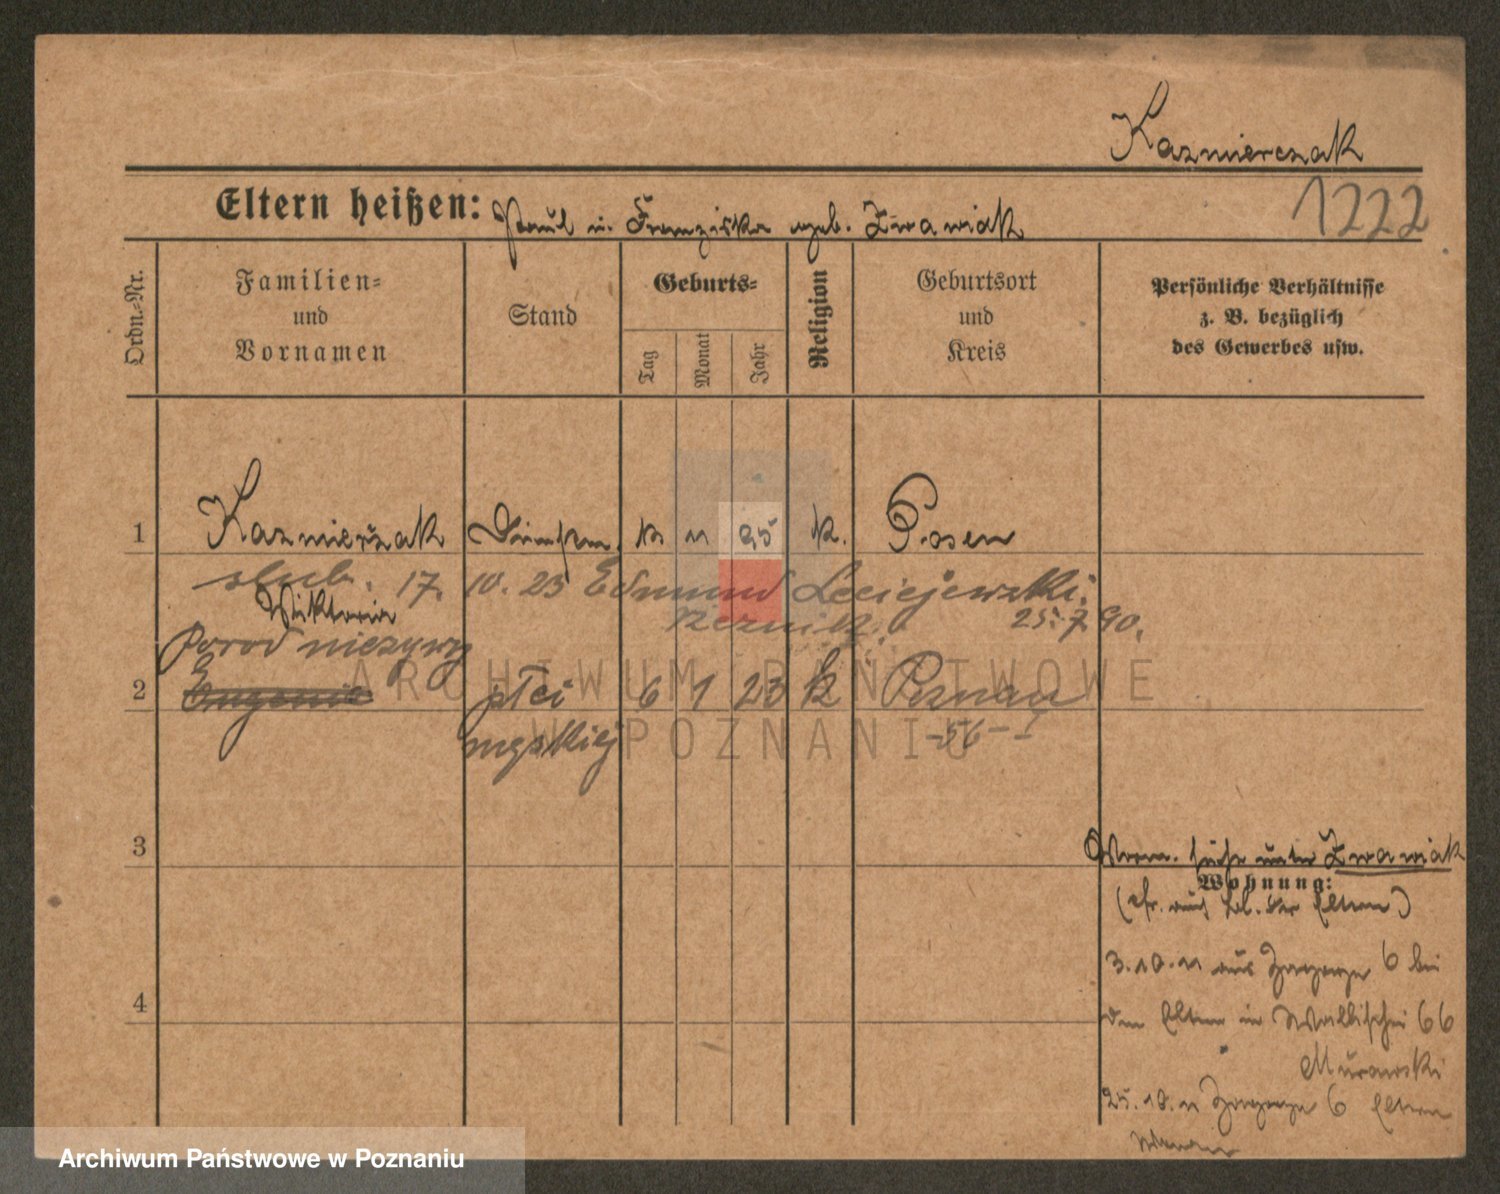 Kazmierczak
Eltern heißen: Paul u. Franziska geb. Zwawiak
1222
Ordn.-Nr.
Familien=
und
Vornamen
Stand
Geburts=
Tag
Monat
Jahr
Religion
Geburtsort
und
Kreis
Persönliche Verhältnisse
z. B. bezüglich
des Gewerbes usw.
1 Kazmierzak 11 95 k. Posen
slub. 17. 10. 23 Edmund Leciejewski.
Wiktoria
rzeznik. 25.7.90.
Porod niezywy
2 Eugenie płci 6 1 23 k Poznań
męskiej -56-I
3
Vorm. siehe unter Zwawiak
Wohnung:
(cfr. auch bl. der Eltern)
3.10.11 aus 6 bei
4
den Eltern in Wallischei 66
Murawski
25.10.11 6 Eltern
ARCHIWUM PAŃSTWOWE
W POZNANIU
Archiwum Państwowe w Poznaniu